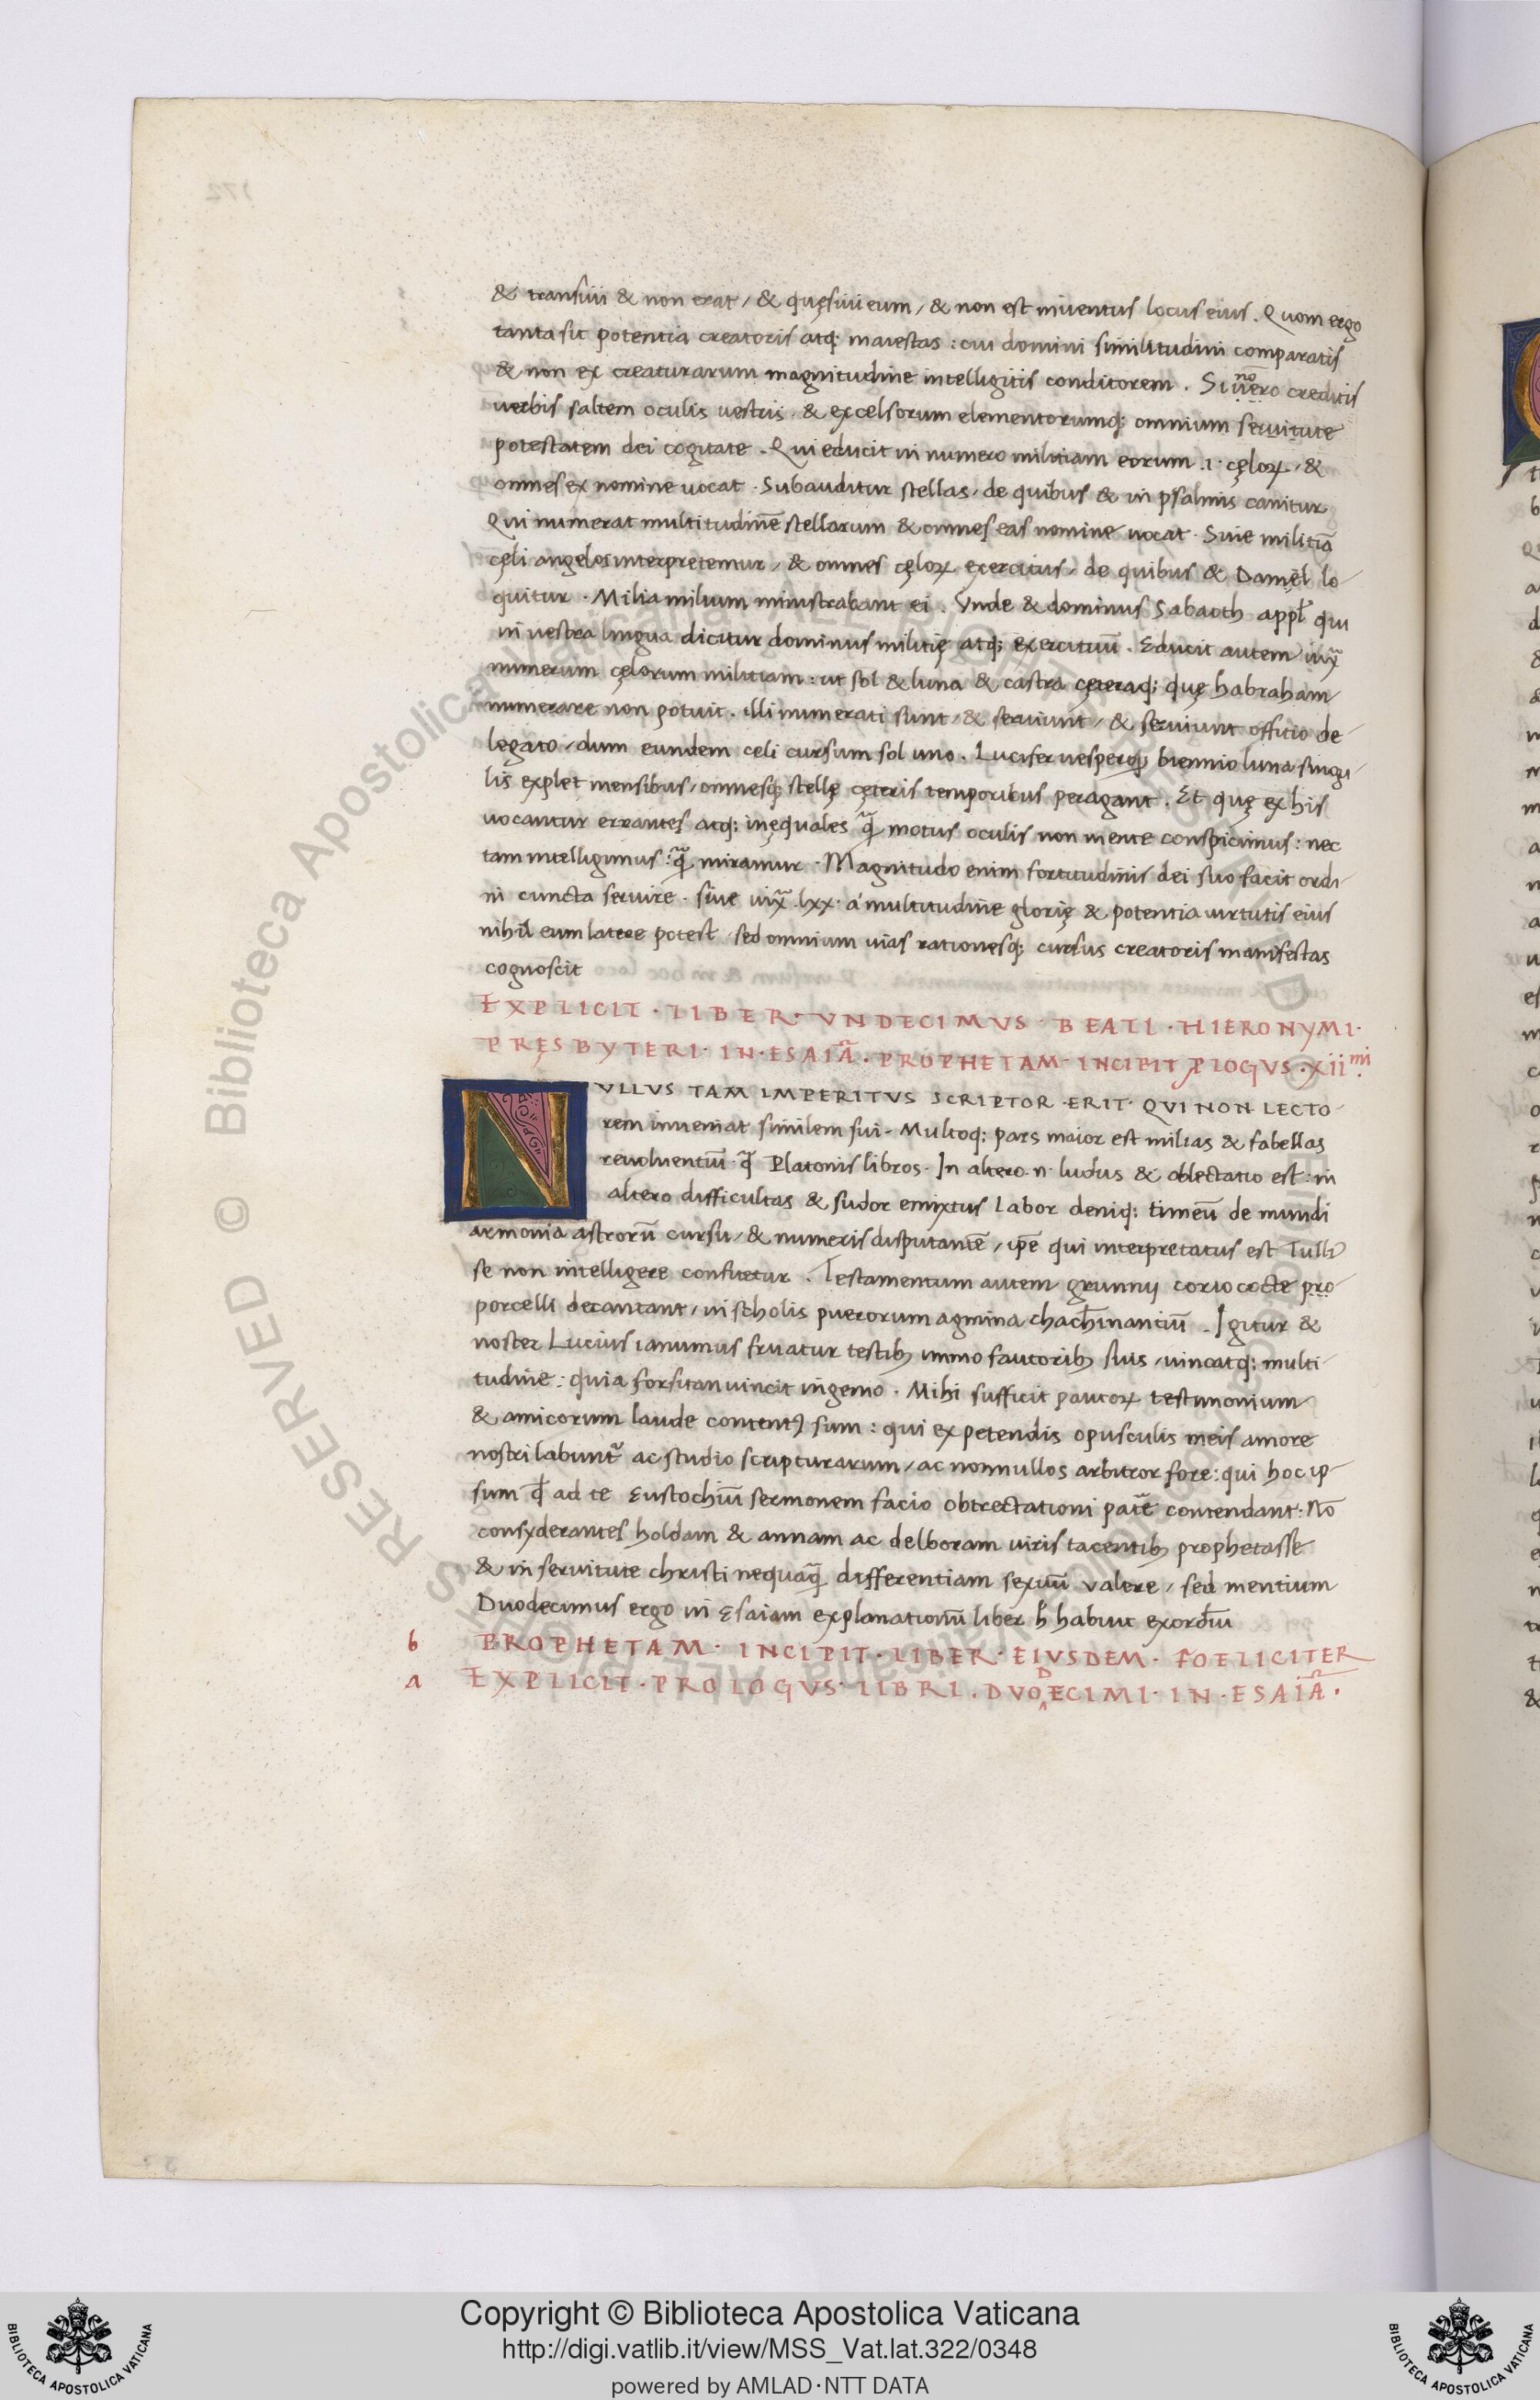 & transiui & non erat / & quęsiui eum / & non est inuentus locus eius . Quom ergo
tanta sit potentia creatoris atq; maiestas : cui domini similitudini comparatis
& non ex creaturarum magnitudine intelligitis conditorem . Si nō uero creditis
uerbis saltem oculis uestris . & excelsorum elementorumq; omnium seruitute
potestatem dei cogitate . Qui educit in numero militiam eorum .i. cęloꝝ / &
omnes ex nomine uocat . Subauditur stellas / de quibus & in psalmis canitur
Qui numerat multitudinē stellarum & omnes eas nomine uocat . Siue militiā
cęli angelos interpretemur / & omnes cęloꝝ exercitus / de quibus & Danięl lo-
quitur . Milia milium ministrabant ei . Vnde & dominus Sabaoth appl̄ qui
in uestra lingua dicitur dominus militię atq; exercituū . Educit autem iux̄
numerum cęlorum militiam : ut sol & luna & castra cęteraq; quę habraham
numerare non potuit . illi numerati sunt / & seruiunt / & seruiunt officio de-
legato / dum eundem celi cursum sol uno . Lucifer uesperq; biennio luna singu-
lis explet mensibus / omnesq; stellę cęteris temporibus peragant . Et quę ex his
uocantur errantes atq; inęquales q̄ motus oculis non mente conspicimus : nec
tam intelligimus : q̄ miramur . Magnitudo enim fortitudinis dei suo facit ordi-
ni cuncta seruire . siue iux̄ .lxx. a multitudine glorię & potentia uirtutis eius
nihil eum latere potest / sed omnium uias rationesq; cursus creatoris manifestas
cognoscit
EXPLICIT · LIBER · VNDECIMVS · BEATI · HIERONYMI ·
PRĘSBYTERI · IN · ESAIĀ · PROPHETAM · INCIPIT ꝓLOGVS · XII mi
NVLLVS TAM IMPERITVS SCRIPTOR · ERIT · QVI NON LECTO-
rem inueniat similem sui . Multoq; pars maior est milias & fabellas
reuoluentiū . q̄ Platonis libros . In altero .n. ludus & oblectatio est : in
altero difficultas & sudor emixtus labor deniq; timeū de mundi
armonia astrorū cursu / & numeris disputantē / ip̄e qui interpretatus est Tulli
se non intelligere confitetur . Testamentum autem grunnij corio cocte pro-
porcelli decantant / in scholis puerorum agmina chachīnantiū . Igitur &
noster Lucius ianumus fruatur testibꝫ immo fautoribꝫ suis / uincatq; multi-
tudine : quia forsitan uincit ingenio . Mihi sufficit paucoꝝ testimonium
& amicorum laude contentꝰ sum : qui expetendis opusculis meis amore
nostri labunt̄ ac studio scripturarum / ac nonnullos arbitror fore : qui hoc ip-
sum q̄ ad te Eustochiū sermonem facio obtrectationi pat̄e contendant . Nō
consyderantes holdam & annam ac delboram uiris tacentibꝫ prophetasse
& in seruitute christi nequaq̄ differentiam sexuū valere / sed mentium
Duodecimus ergo in Esaiam explanationū liber h̄ habuit exordiū
b PROPHETAM · INCIPIT · LIBER · EIVSDEM · FOELICITER
a EXPLICIT · PROLOGVS · LIBRI . DVODECIMI · IN · ESAIĀ .
© Biblioteca Apostolica Vaticana ALL RIGHTS RESERVED
Copyright © Biblioteca Apostolica Vaticana
http://digi.vatlib.it/view/MSS_Vat.lat.322/0348
powered by AMLAD·NTT DATA
BIBLIOTECA APOSTOLICA VATICANA
BIBLIOTECA APOSTOLICA VATICANA